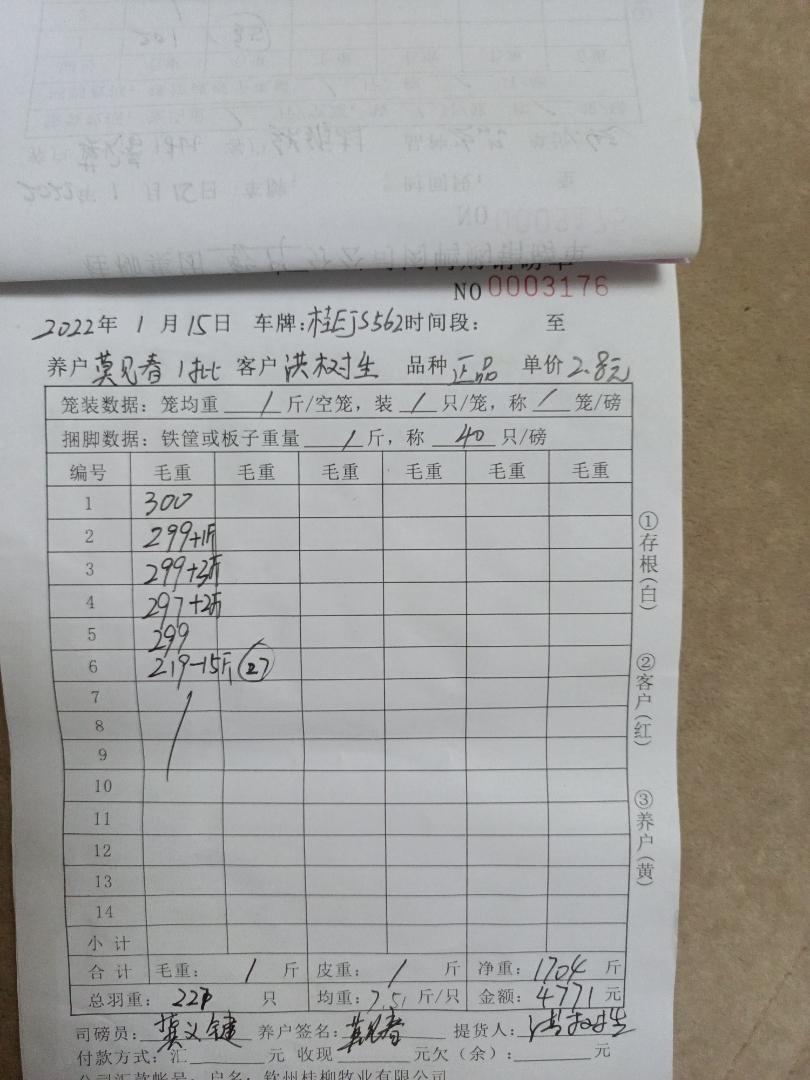 NO 0003176
2022年 1 月 15日 车牌:桂EJS562时间段: 至
养户 莫见春 1批 客户 洪树生 品种 正品 单价 2.8元
笼装数据: 笼均重 / 斤/空笼, 装 / 只/笼, 称 / 笼/磅
捆脚数据: 铁筐或板子重量 / 斤, 称 40 只/磅
编号 毛重 毛重 毛重 毛重 毛重 毛重
1 300
2 299+1斤
3 299+3斤
4 297+2斤
5 299
6 219-15斤 27
7
8
9
10
11
12
13
14
小 计
合 计 毛重: / 斤 皮重: / 斤 净重: 1704 斤
总羽重: 227 只 均重: 7.51 斤/只 金额: 4771 元
司磅员: 莫义键 养户签名: 莫见春 提货人: 洪树生
付款方式: 汇 元 收现 元欠(余): 元
公司汇款帐号: 户名: 钦州桂柳牧业有限公司
①存根(白)
②客户(红)
③养户(黄)